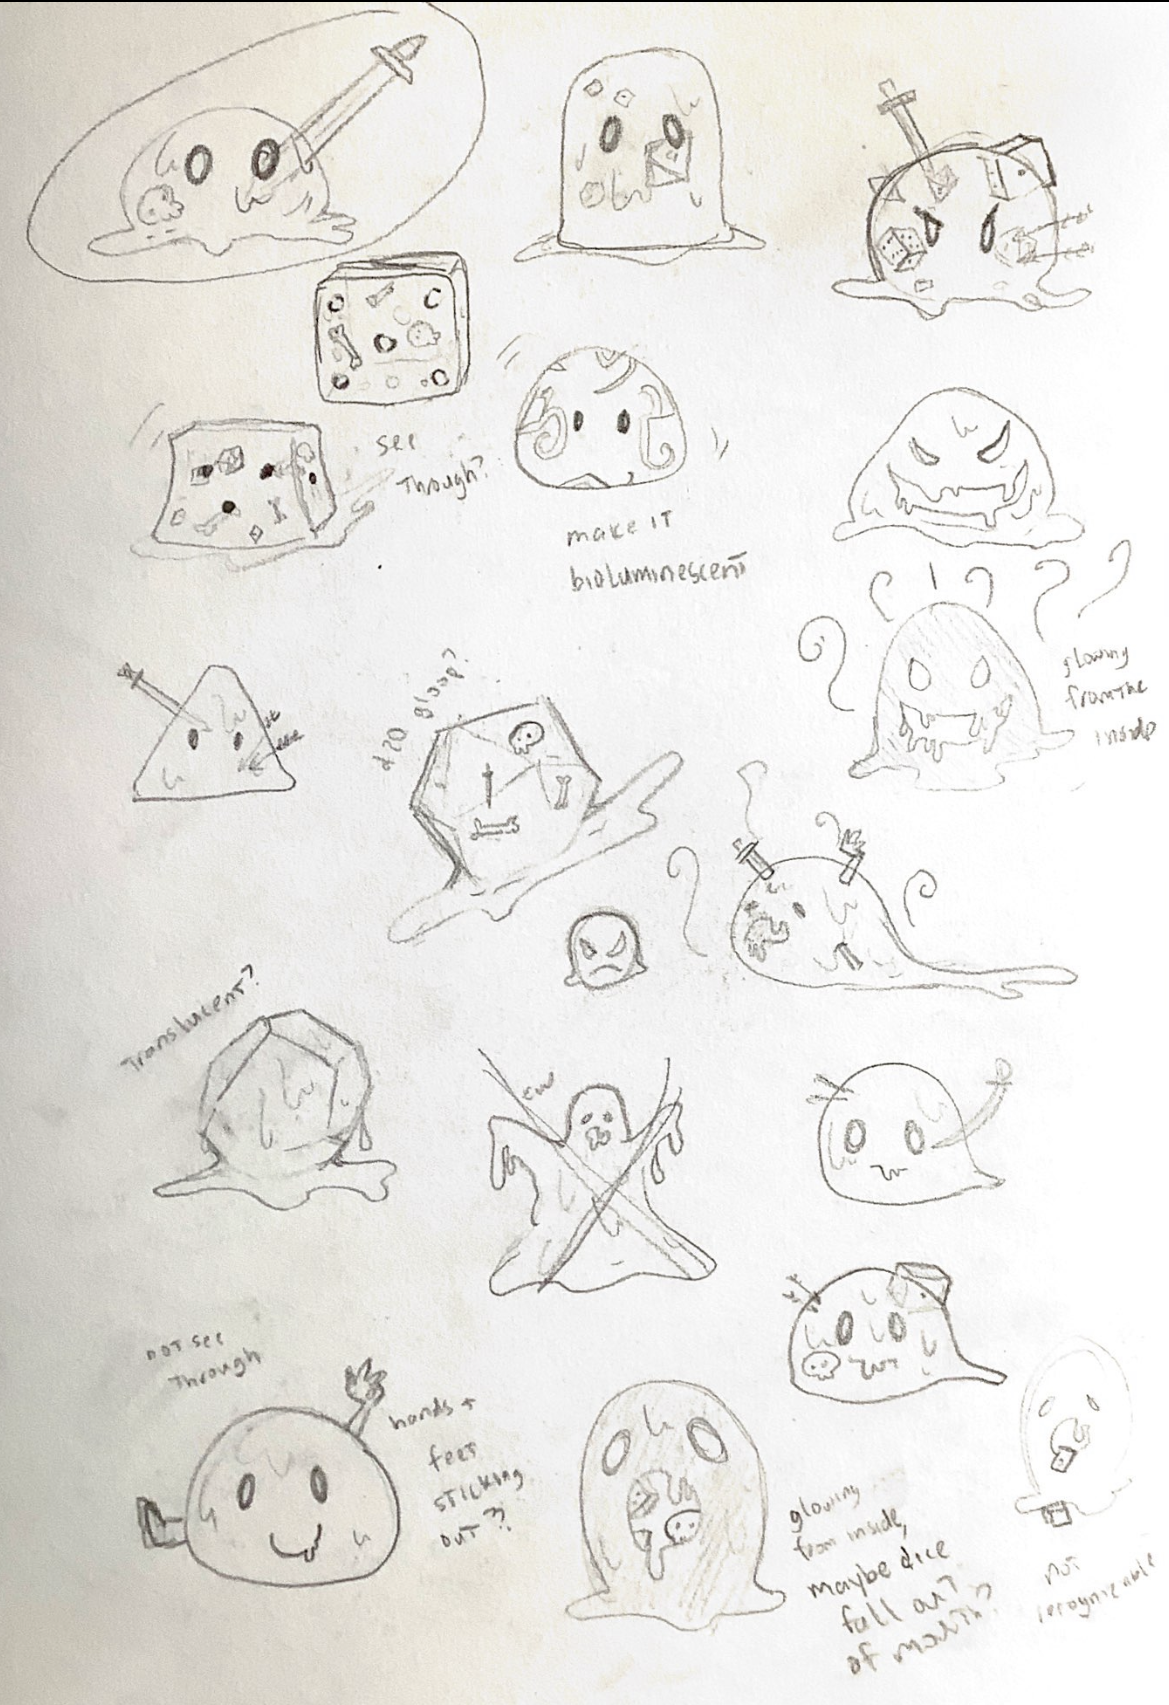 see
Though?
make IT
bioluminescent
glowing
from the
inside
d20 Bloop?
Translucent?
ew
not see
Through
hands +
feet
sticking
out??
glowing
from inside,
maybe dice
fall out
of mouth?
not
recognizable